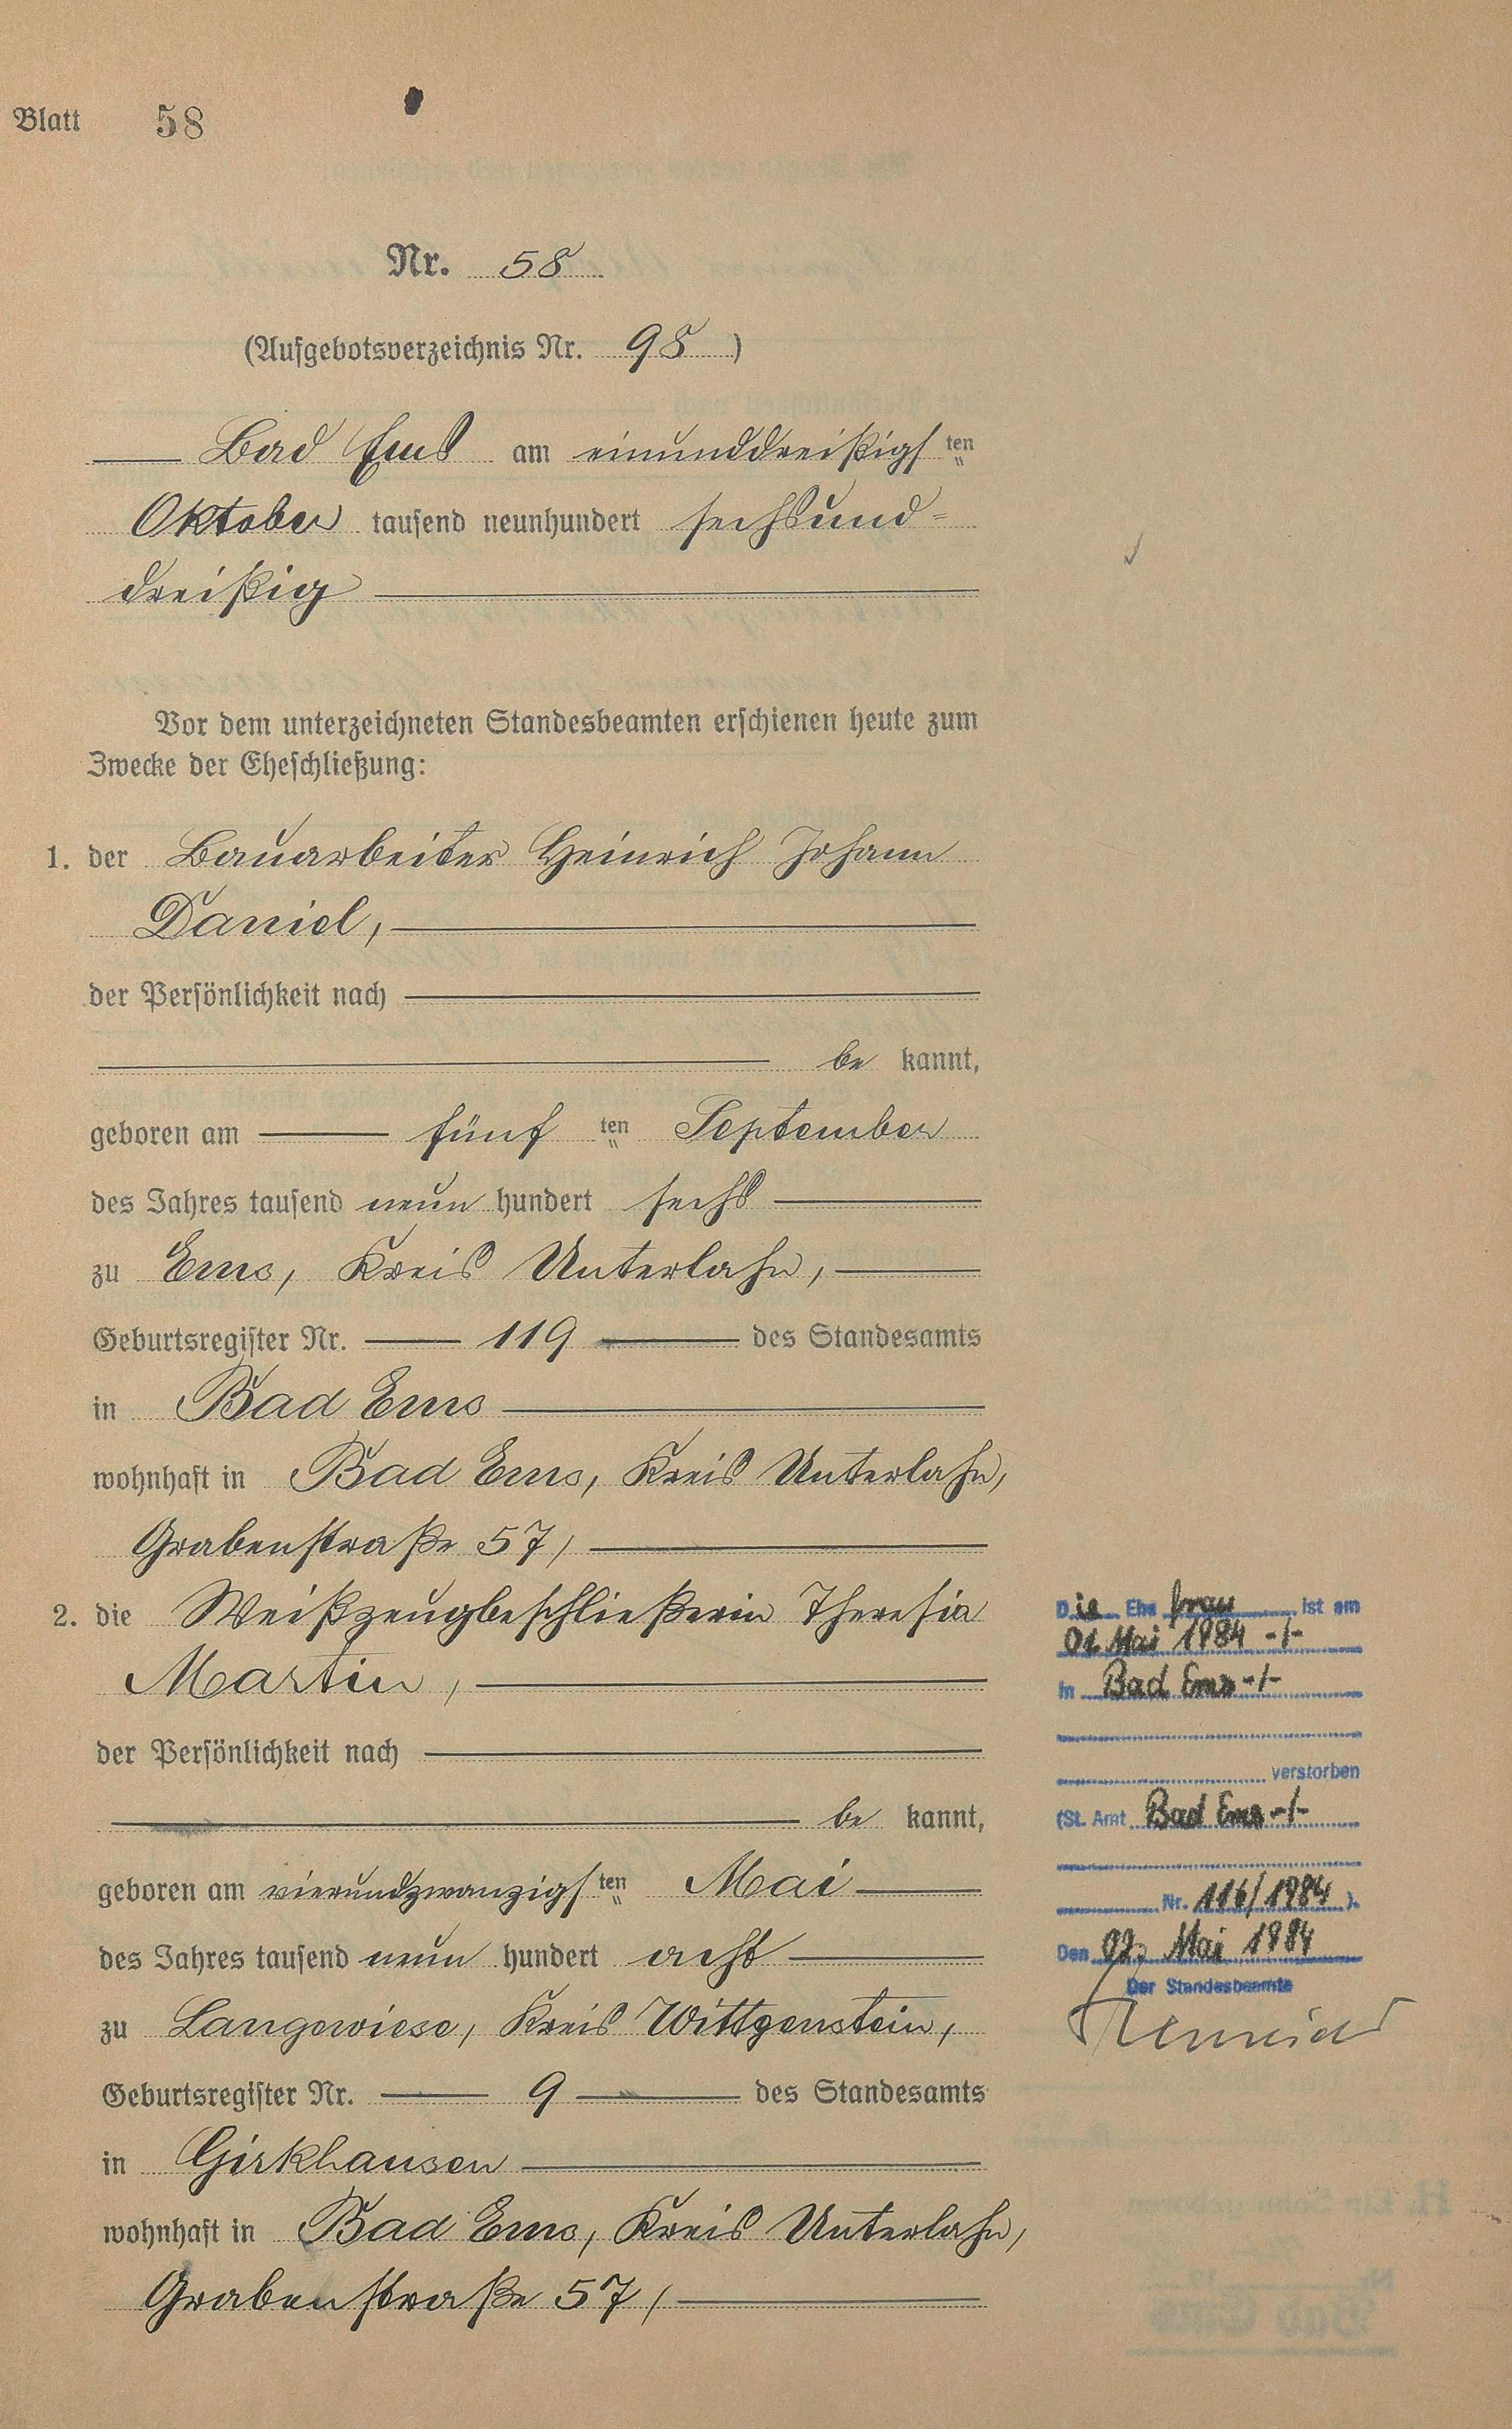 Blatt 58
Nr. 58
(Aufgebotsverzeichnis Nr. 98)
Bad Ems am einunddreißigsten
Oktober tausend neunhundert sechsund=
dreißig
Vor dem unterzeichneten Standesbeamten erschienen heute zum
Zwecke der Eheschließung:
1. der Bauarbeiter Heinrich Johann
Daniel,
der Persönlichkeit nach
be kannt,
geboren am fünf ten September
des Jahres tausend neun hundert sechs
zu Ems, Kreis Unterlahn,
Geburtsregister Nr. 119 des Standesamts
in Bad Ems
wohnhaft in Bad Ems, Kreis Unterlahn,
Grabenstraße 57,
2. die Weißzeugbeschließerin Theresia
Martin,
der Persönlichkeit nach
be kannt,
geboren am vierundzwanzigsten Mai
des Jahres tausend neun hundert acht
zu Langewiese, Kreis Wittgenstein,
Geburtsregister Nr. 9 des Standesamts
in Girkhausen
wohnhaft in Bad Ems, Kreis Unterlahn,
Grabenstraße 57,
Die Ehefrau ist am
01. Mai 1984 -/-
in Bad Ems -/-
verstorben
(St. Amt Bad Ems -/-
Nr. 116/1984 ).
Den 02. Mai 1984
Der Standesbeamte